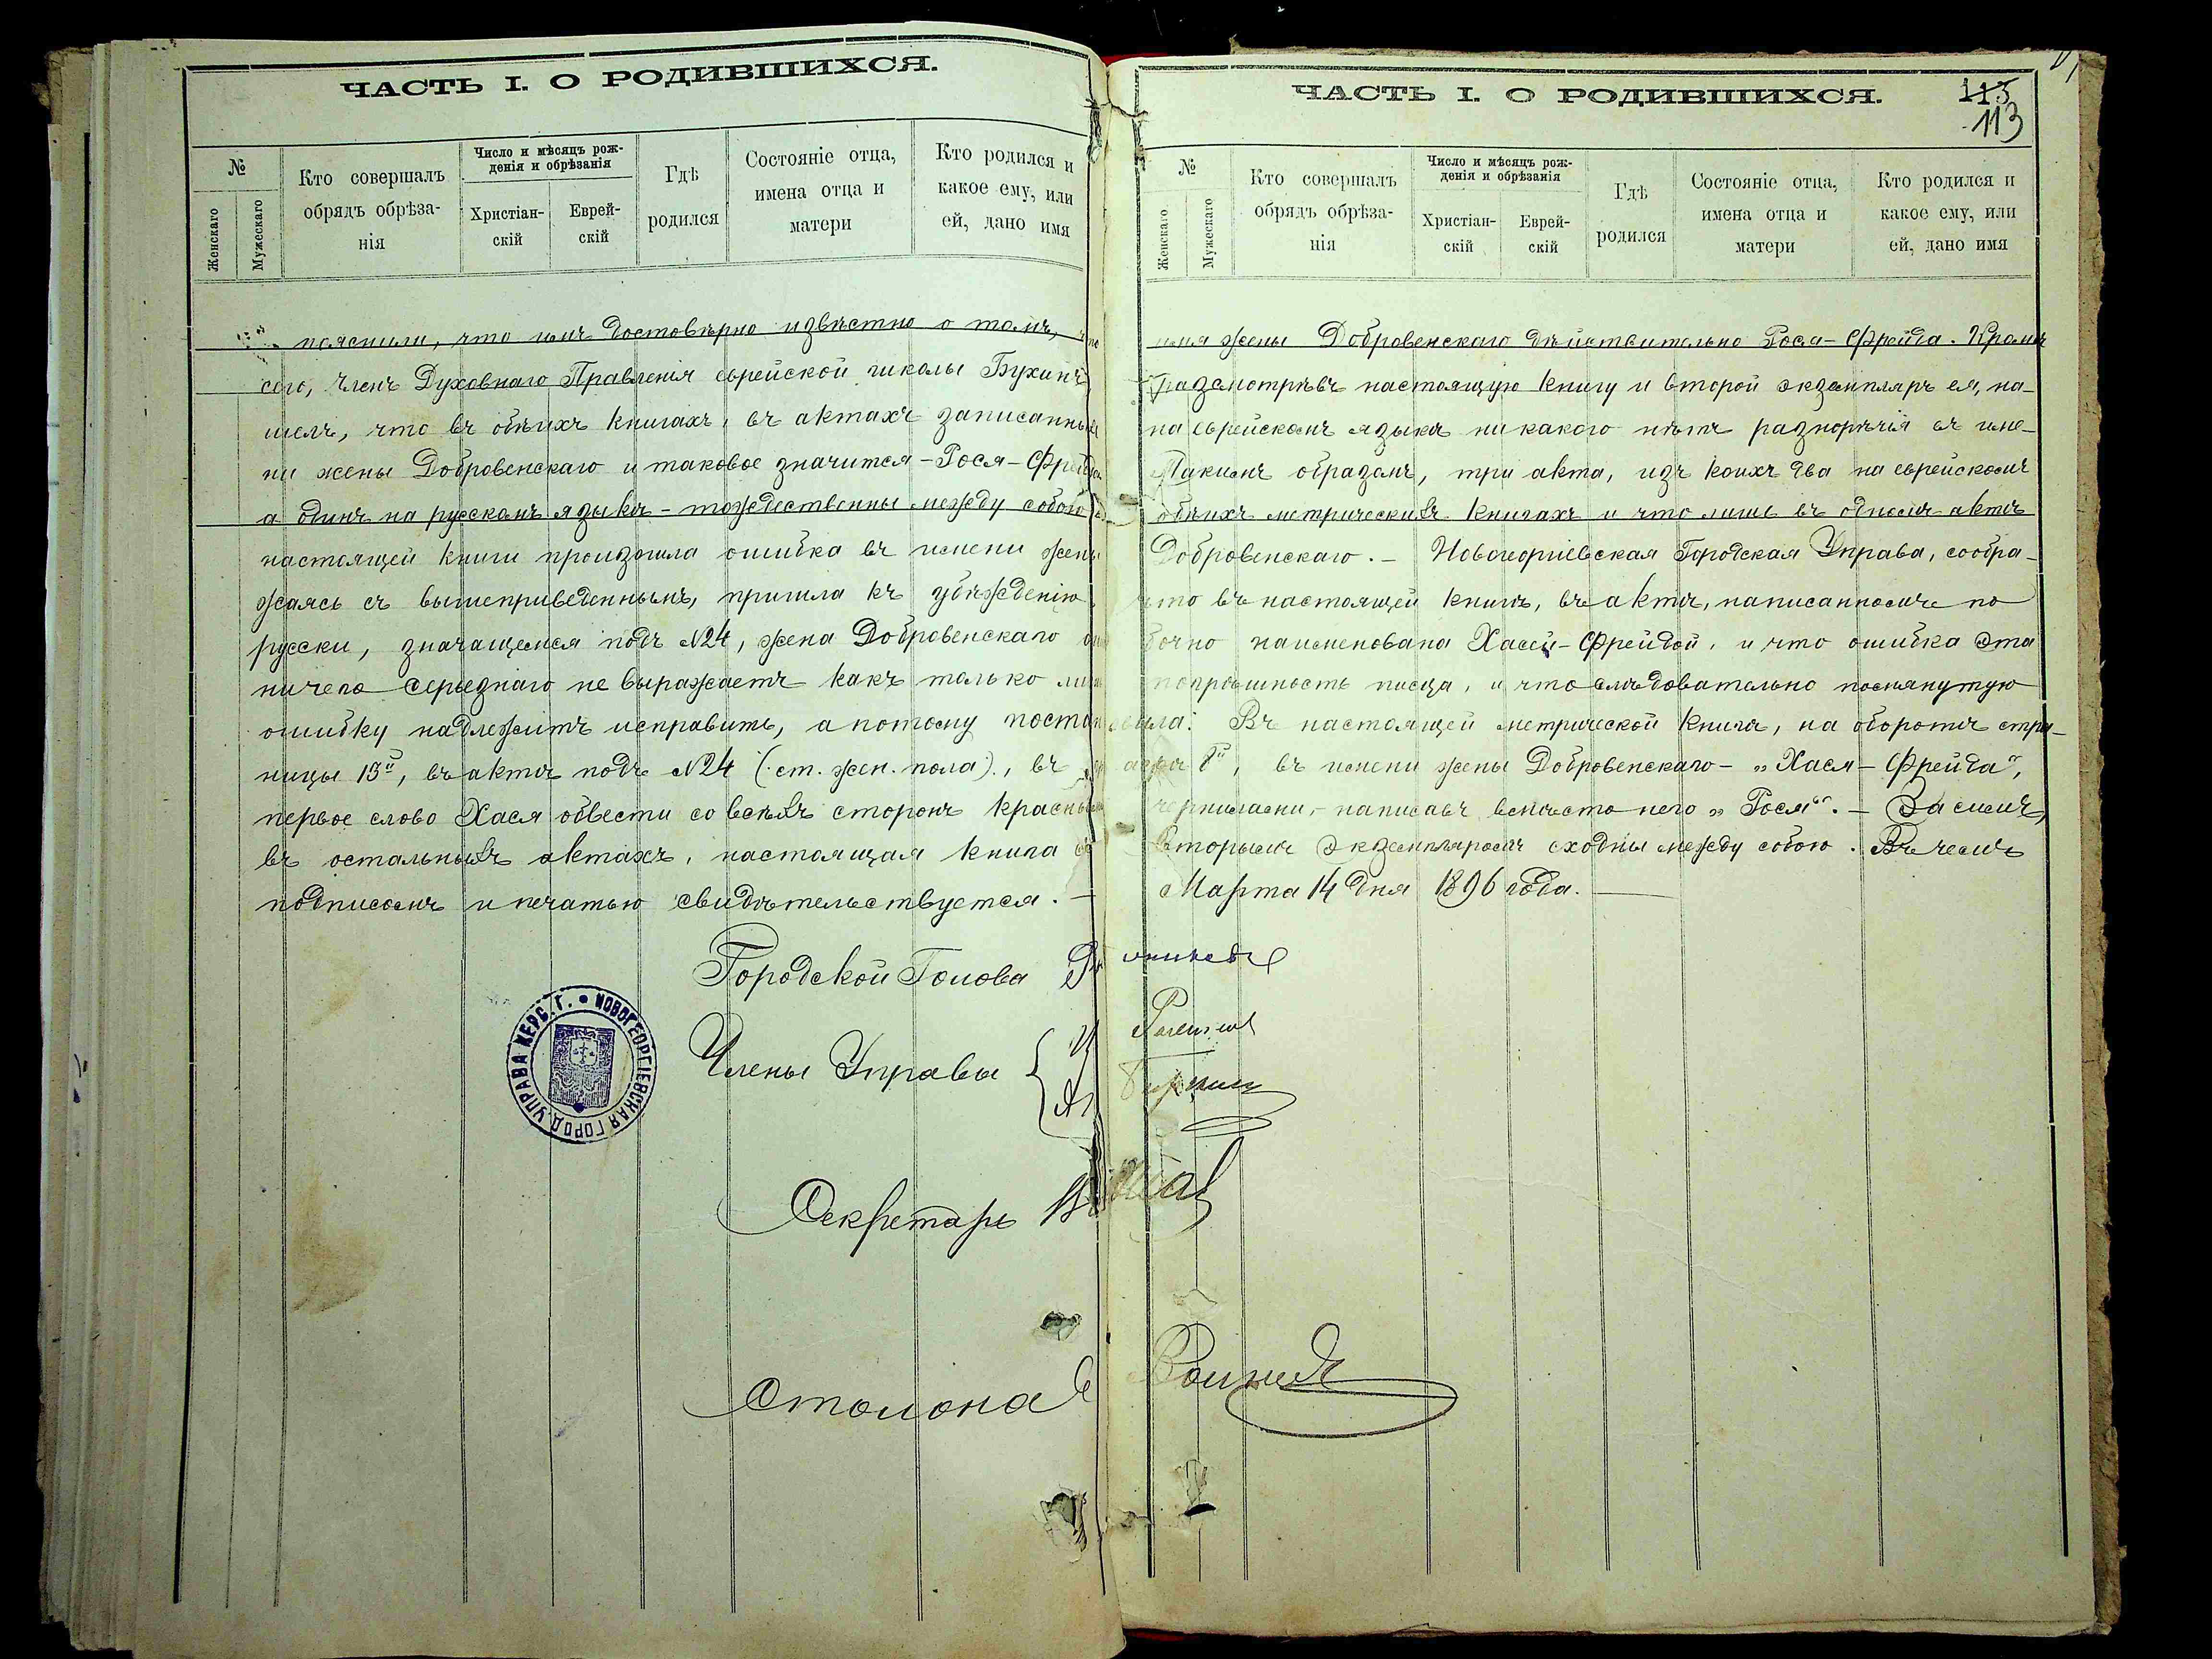 ЧАСТЬ I. О РОДИВШИХСЯ.
№
Женскаго
Мужескаго
Кто совершалъ
обрядъ обрѣза-
нія
Число и мѣсяцъ рож-
денія и обрѣзанія
Христіан-
скій
Еврей-
скій
Гдѣ
родился
Состояніе отца,
имена отца и
матери
Кто родился и
какое ему, или
ей, дано имя
ЧАСТЬ I. О РОДИВШИХСЯ.
115
113
№
Женскаго
Мужескаго
Кто совершалъ
обрядъ обрѣза-
нія
Число и мѣсяцъ рож-
денія и обрѣзанія
Христіан-
скій
Еврей-
скій
Гдѣ
родился
Состояніе отца,
имена отца и
матери
Кто родился и
какое ему, или
ей, дано имя
пояснили, что имъ достовѣрно извѣстно о томъ, что имя жены Добровенскаго дѣйствительно Рося-Фрейда. Кромѣ
сего, Членъ Духовнаго Правленія еврейской школы Бухинъ разсмотрѣвъ настоящую книгу и второй экземпляръ ея, на-
шелъ, что въ обѣихъ книгахъ, въ актахъ записанныхъ на еврейскомъ языкѣ никакого нѣтъ разнорѣчія въ име-
ни жены Добровенскаго и таковое значится - Рося-Фрейда. Такимъ образомъ, три акта, изъ коихъ два на еврейскомъ
а одинъ на русскомъ языкѣ - тождественны между собою въ обѣихъ метрическихъ книгахъ и что лишь въ одномъ актѣ
настоящей книги произошла ошибка въ имени жены Добровенскаго. - Новогеоргіевская Городская Управа, сообра-
жаясь съ вышеприведеннымъ, пришла къ убѣжденію что въ настоящей книгѣ, въ актѣ, написанномъ по
русски, значащемся подъ №24, жена Добровенскаго ошибочно наименована Хасей-Фрейдой, и что ошибка эта
ничего серьезнаго не выражаетъ какъ только лишь погрѣшность писца, и что слѣдовательно помянутую
ошибку надлежитъ исправить, а потому постановила: Въ настоящей метрической книгѣ, на оборотѣ стра-
ницы 15й, въ актѣ подъ №24 (ст. жен. пола), въ графѣ 8й, въ имени жены Добровенскаго - „Хася-Фрейда“,
первое слово Хася обвести со всѣхъ сторонъ красными чернилами, - написавъ вмѣсто него „Рося“. - За симъ,
въ остальныхъ актахъ, настоящая книга со вторымъ экземпляромъ сходны между собою. Въ чемъ
подписомъ и печатью свидѣтельствуется. - Марта 14 дня 1896 года.
Городской Голова
Члены Управы
Секретарь
Столонач
НОВОГЕОРГІЕВСКАЯ ГОРОД. УПРАВА ХЕРС. Г.